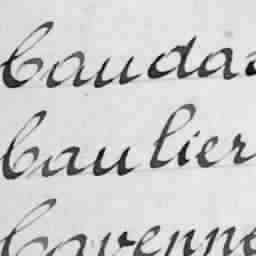 Caudas
Caulier
Cavenne